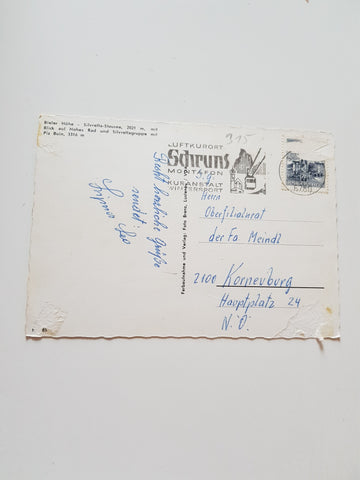 Bieler Höhe - Silvretta-Stausee, 2021 m, mit
Blick auf Hohes Rad und Silvrettagruppe mit
Piz Buin, 3316 m
315
LUFTKURORT
Schruns
MONTAFON
KURANSTALT
WINTERSPORT
6780
Recht herzliche Grüße
sendet
Farbaufnahme und Verlag: Foto Branz,
S. g.
Herrn
Oberfilialrat
der Fa. Meindl
2100 Korneuburg
Hauptplatz 24
N.Ö.